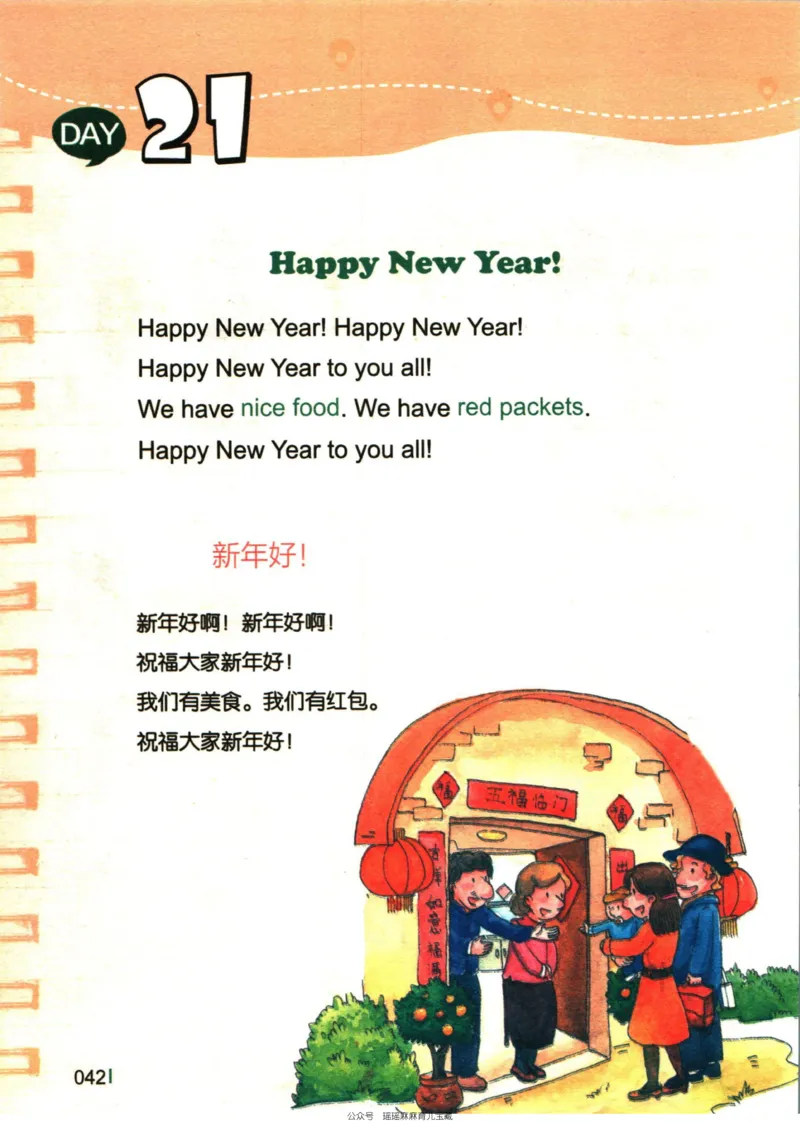 DAY 21
Happy New Year!
Happy New Year! Happy New Year!
Happy New Year to you all!
We have nice food. We have red packets.
Happy New Year to you all!
新年好！
新年好啊！新年好啊！
祝福大家新年好！
我们有美食。我们有红包。
祝福大家新年好！
福
五福临门
福
如意福满
出
042
公众号 瑶瑶麻麻育儿宝藏